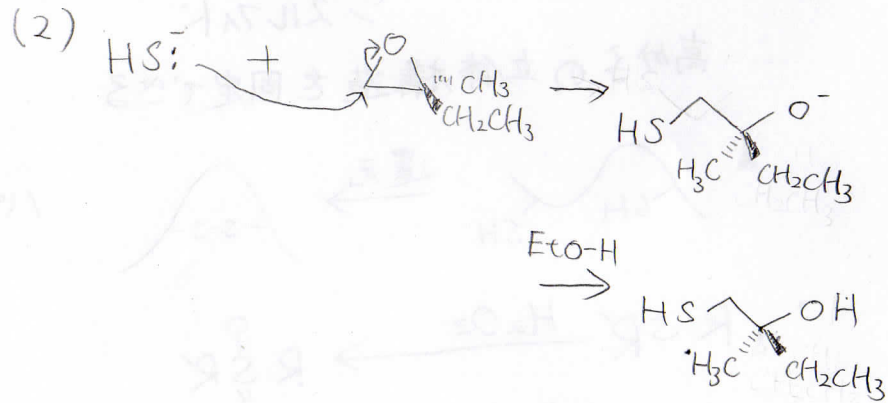 (2) HS:⁻ + O CH3
CH2CH3
HS O⁻
H3C CH2CH3
EtO-H
HS OH
H3C CH2CH3